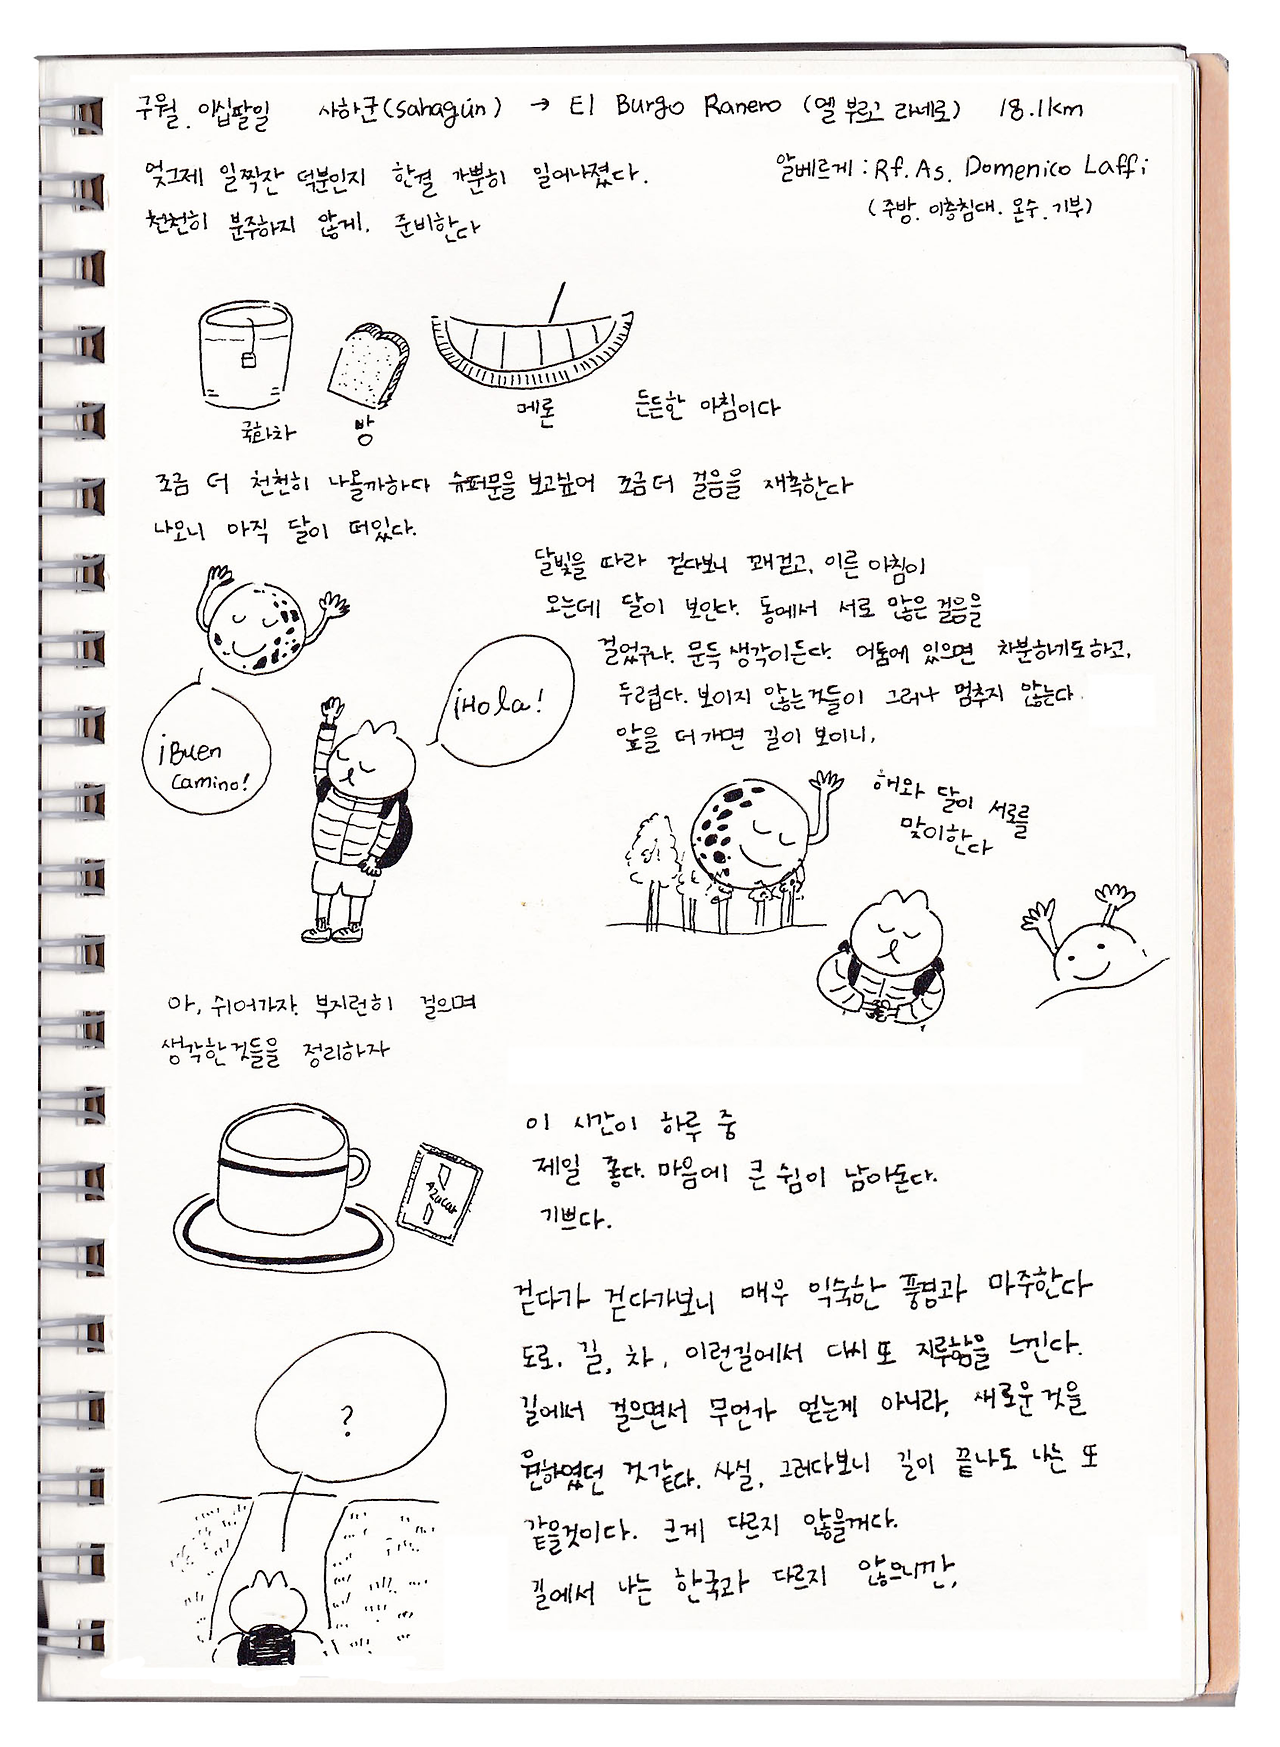 구월. 이십팔일 사하군(Sahagún) → El Burgo Ranero (엘 부르고 라네로) 18.1km
엊그제 일찍잔 덕분인지 한결 가뿐히 일어나졌다.
천천히 분주하지 않게. 준비한다
알베르게 : Rf. As. Domenico Laffi
(주방. 이층침대. 온수. 기부)
국화차
빵
메론
든든한 아침이다
조금 더 천천히 나올까하다 슈퍼문을 보고싶어 조금더 걸음을 재촉한다
나오니 아직 달이 떠있다.
달빛을 따라 걷다보니 꽤걷고, 이른 아침이
오는데 달이 보인다. 통에서 서로 많은 걸음을
걸었구나. 문득 생각이든다. 어둠에 있으면 차분하기도하고,
두렵다. 보이지 않는것들이 그러나 멈추지 않는다.
앞을 더가면 길이 보이니,
¡Buen
Camino!
¡Hola!
해와 달이 서로를
맞이한다
아, 쉬어가자. 부지런히 걸으며
생각한것들을 정리하자
Azucar
이 시간이 하루 중
제일 좋다. 마음에 큰 쉼이 남아돈다.
기쁘다.
걷다가 걷다가보니 매우 익숙한 풍경과 마주한다
도로. 길, 차, 이런길에서 다시 또 지루함을 느낀다.
길에서 걸으면서 무언가 얻는게 아니라, 새로운 것을
원하였던 것같다. 사실, 그러다보니 길이 끝나도 나는 또
같을것이다. 크게 다르지 않을꺼다.
길에서 나는 한국과 다르지 않으니깐,
?